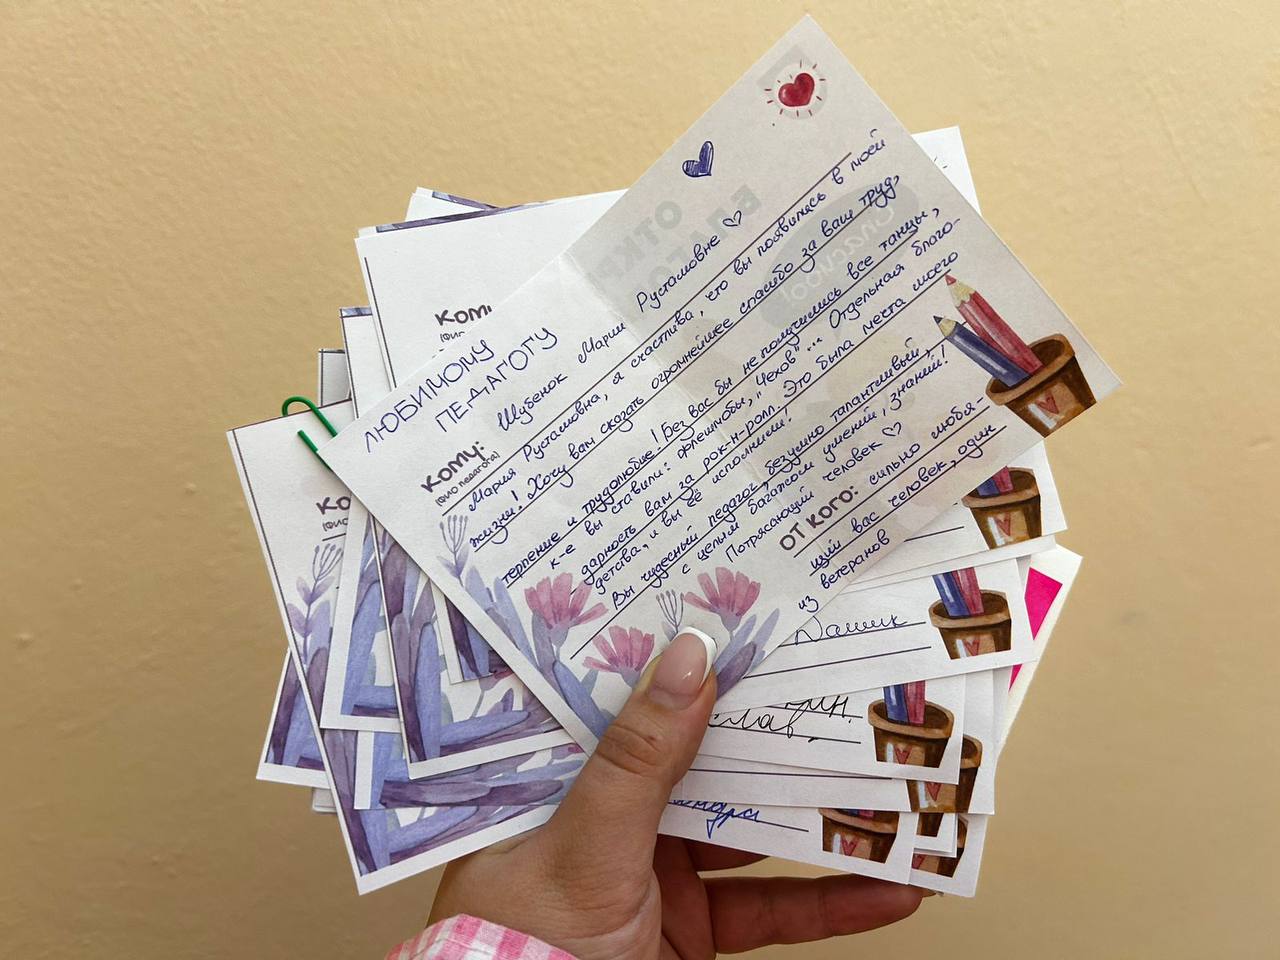 ЛЮБИМОМУ
ПЕДАГОГУ
КОМУ:
(ФИО педагога)
Шубенок Марии Рустамовне ♡
Мария Рустамовна, я счастлива, что вы появились в моей
жизни! Хочу вам сказать огромнейшее спасибо за ваш труд,
терпение и трудолюбие! Без вас бы не получились все танцы,
к-е вы ставили: флешмобы, "Чехов"... Отдельная благо-
дарность вам за рок-н-ролл. Это была мечта моего
детства, и вы её исполнили!
Вы чудесный педагог, безумно талантливый,
с целым багажом умений, знаний!
Потрясающий человек ♡
ОТ КОГО: сильно любя-
щий вас человек, один
из ветеранов
Кому
Ко
Дашик
слав